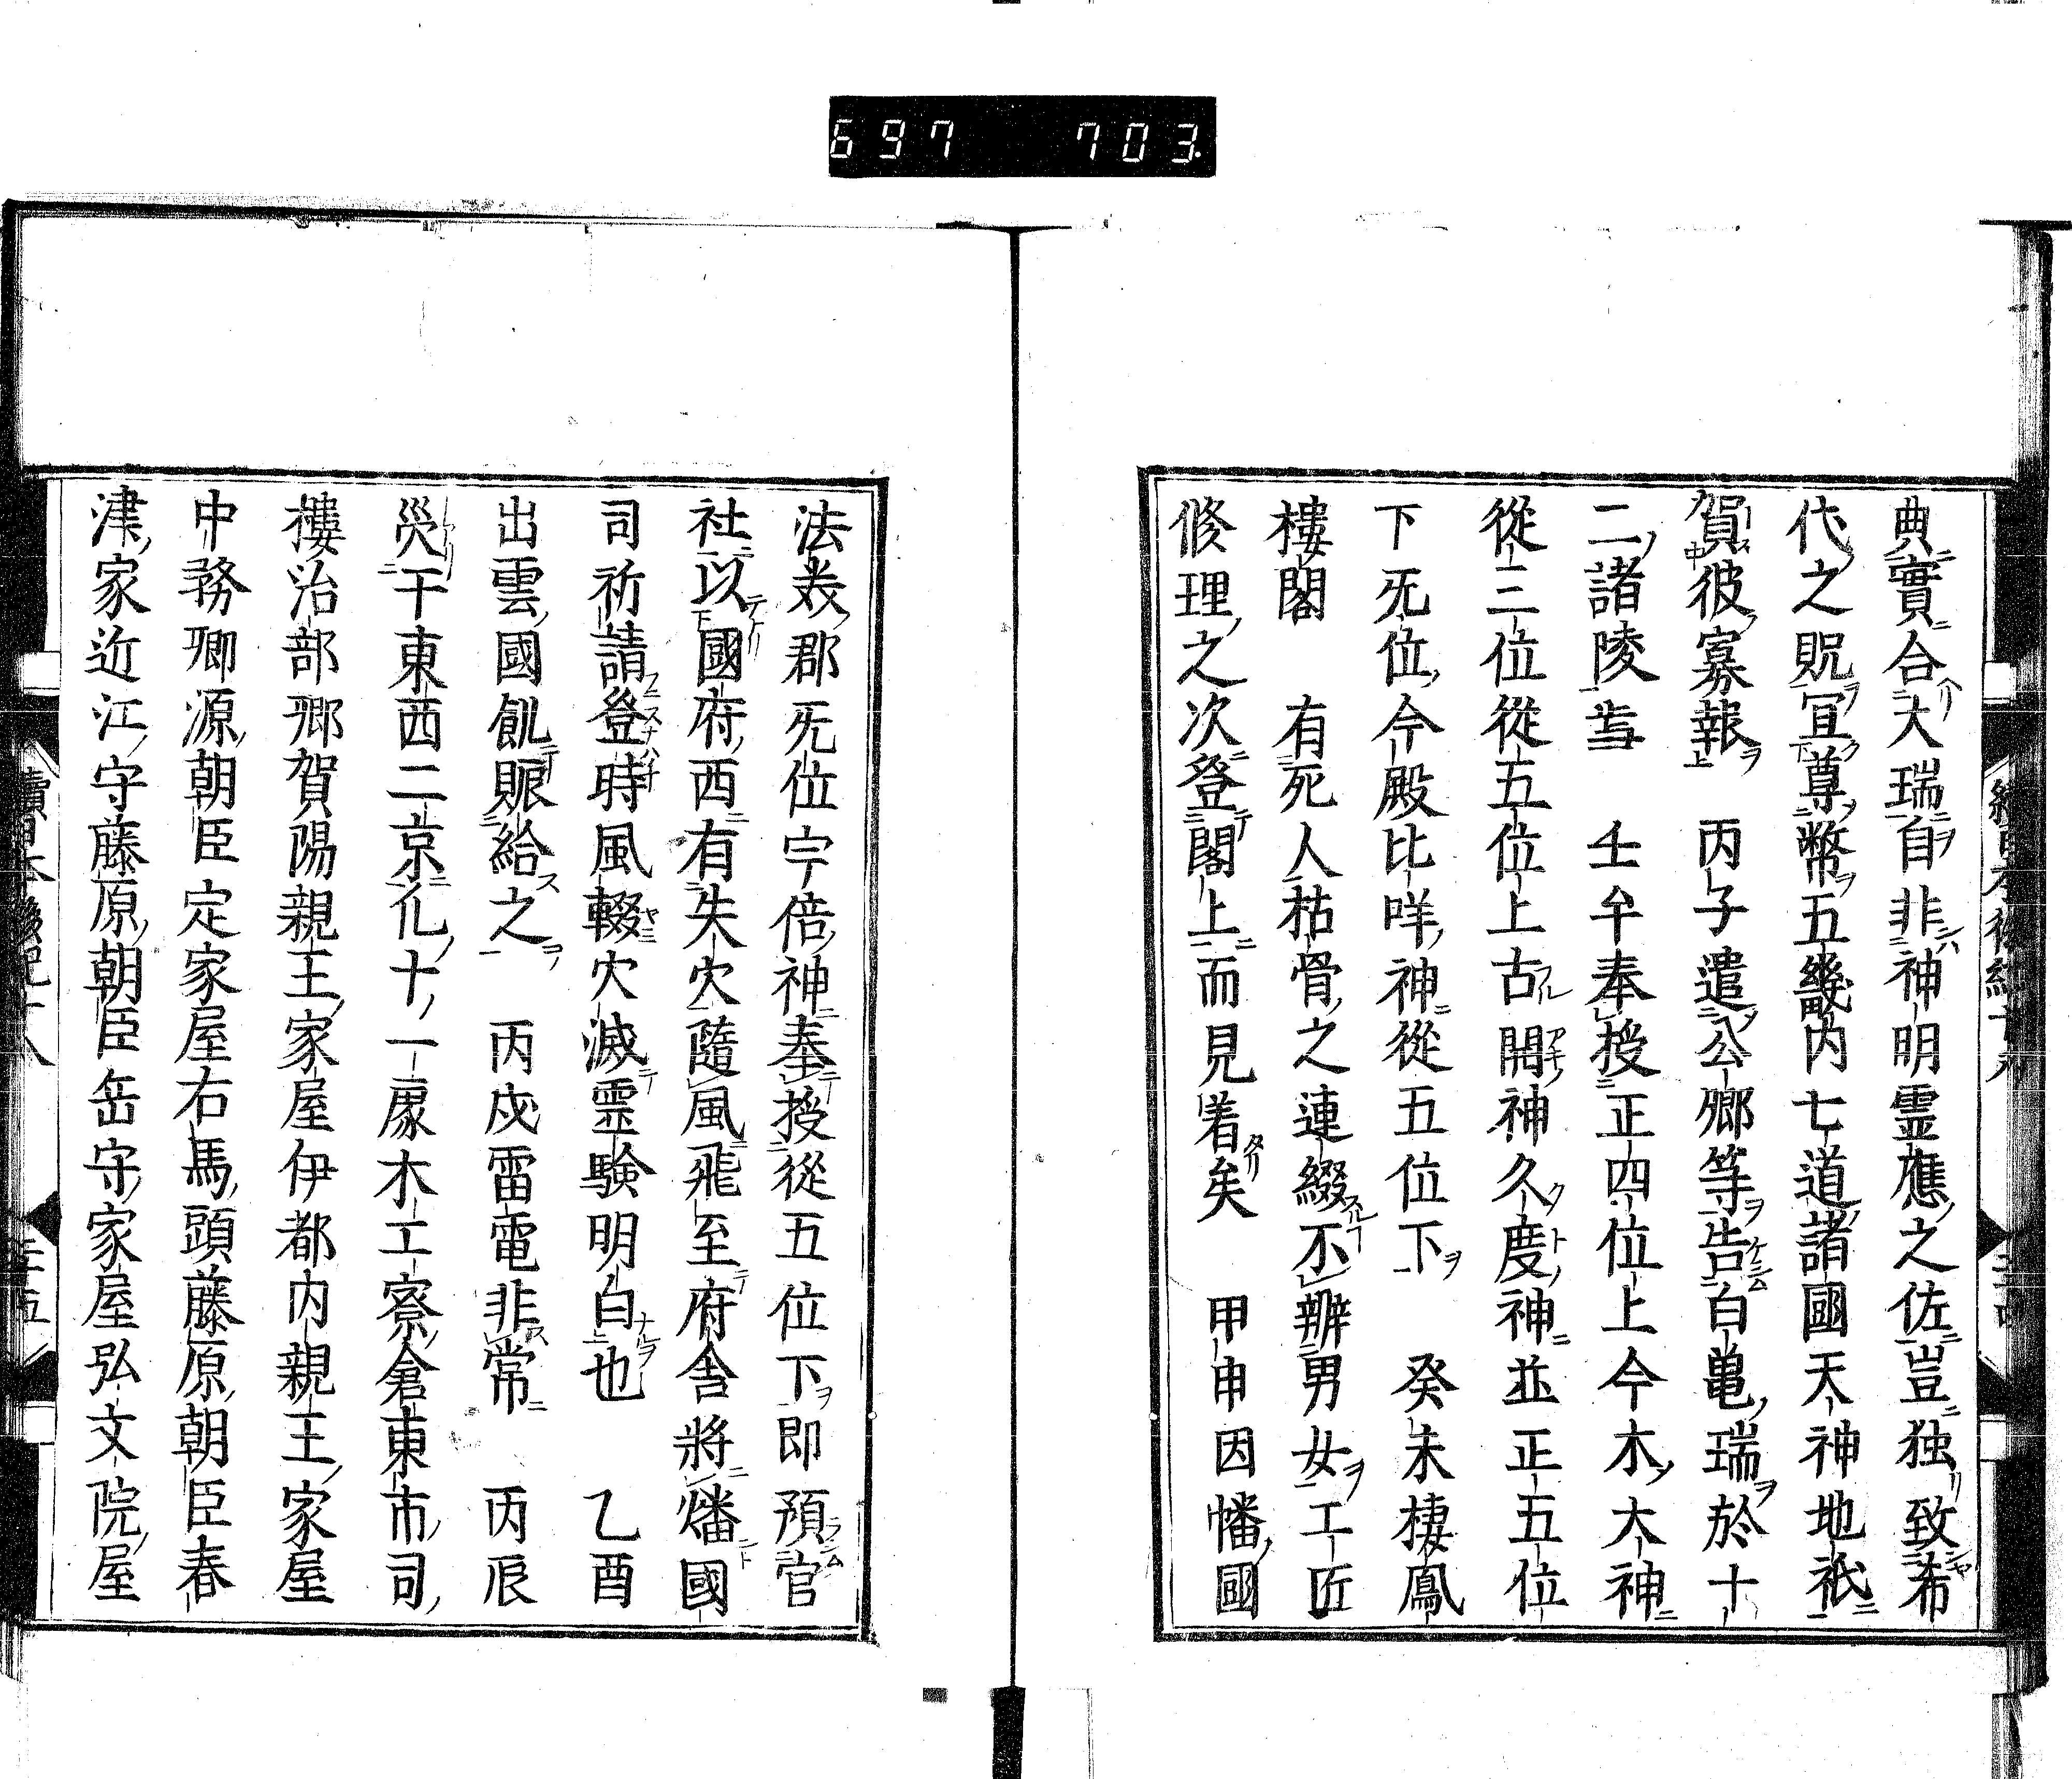 697 703
典實合大瑞自非神明霊應之佐豈独致希
代之貺宜尊幣五畿内七道諸國天神地祇
賀彼寡報 丙子遣公卿等告白亀瑞於十
二諸陵 壬午奉授正四位上今木大神
從三位從五位上古開神久度神並正五位
下无位今殿比咩神從五位下 癸未棲鳳
樓閣 有死人枯骨之連綴不辨男女工匠
修理之次登閣上而見着矣 甲申因幡國
法美郡无位宇倍神奉授從五位下即預官
社以國府西有失火隨風飛至府舎將燔國
司祈請登時風輟火滅霊験明白也 乙酉
出雲國飢賑給之 丙戌雷電非常 丙辰
災于東西二京凡十一處木工寮倉東市司
樓治部卿賀陽親王家屋伊都内親王家屋
中務卿源朝臣定家屋右馬頭藤原朝臣春
津家近江守藤原朝臣岳守家屋弘文院屋
續日本後紀十八